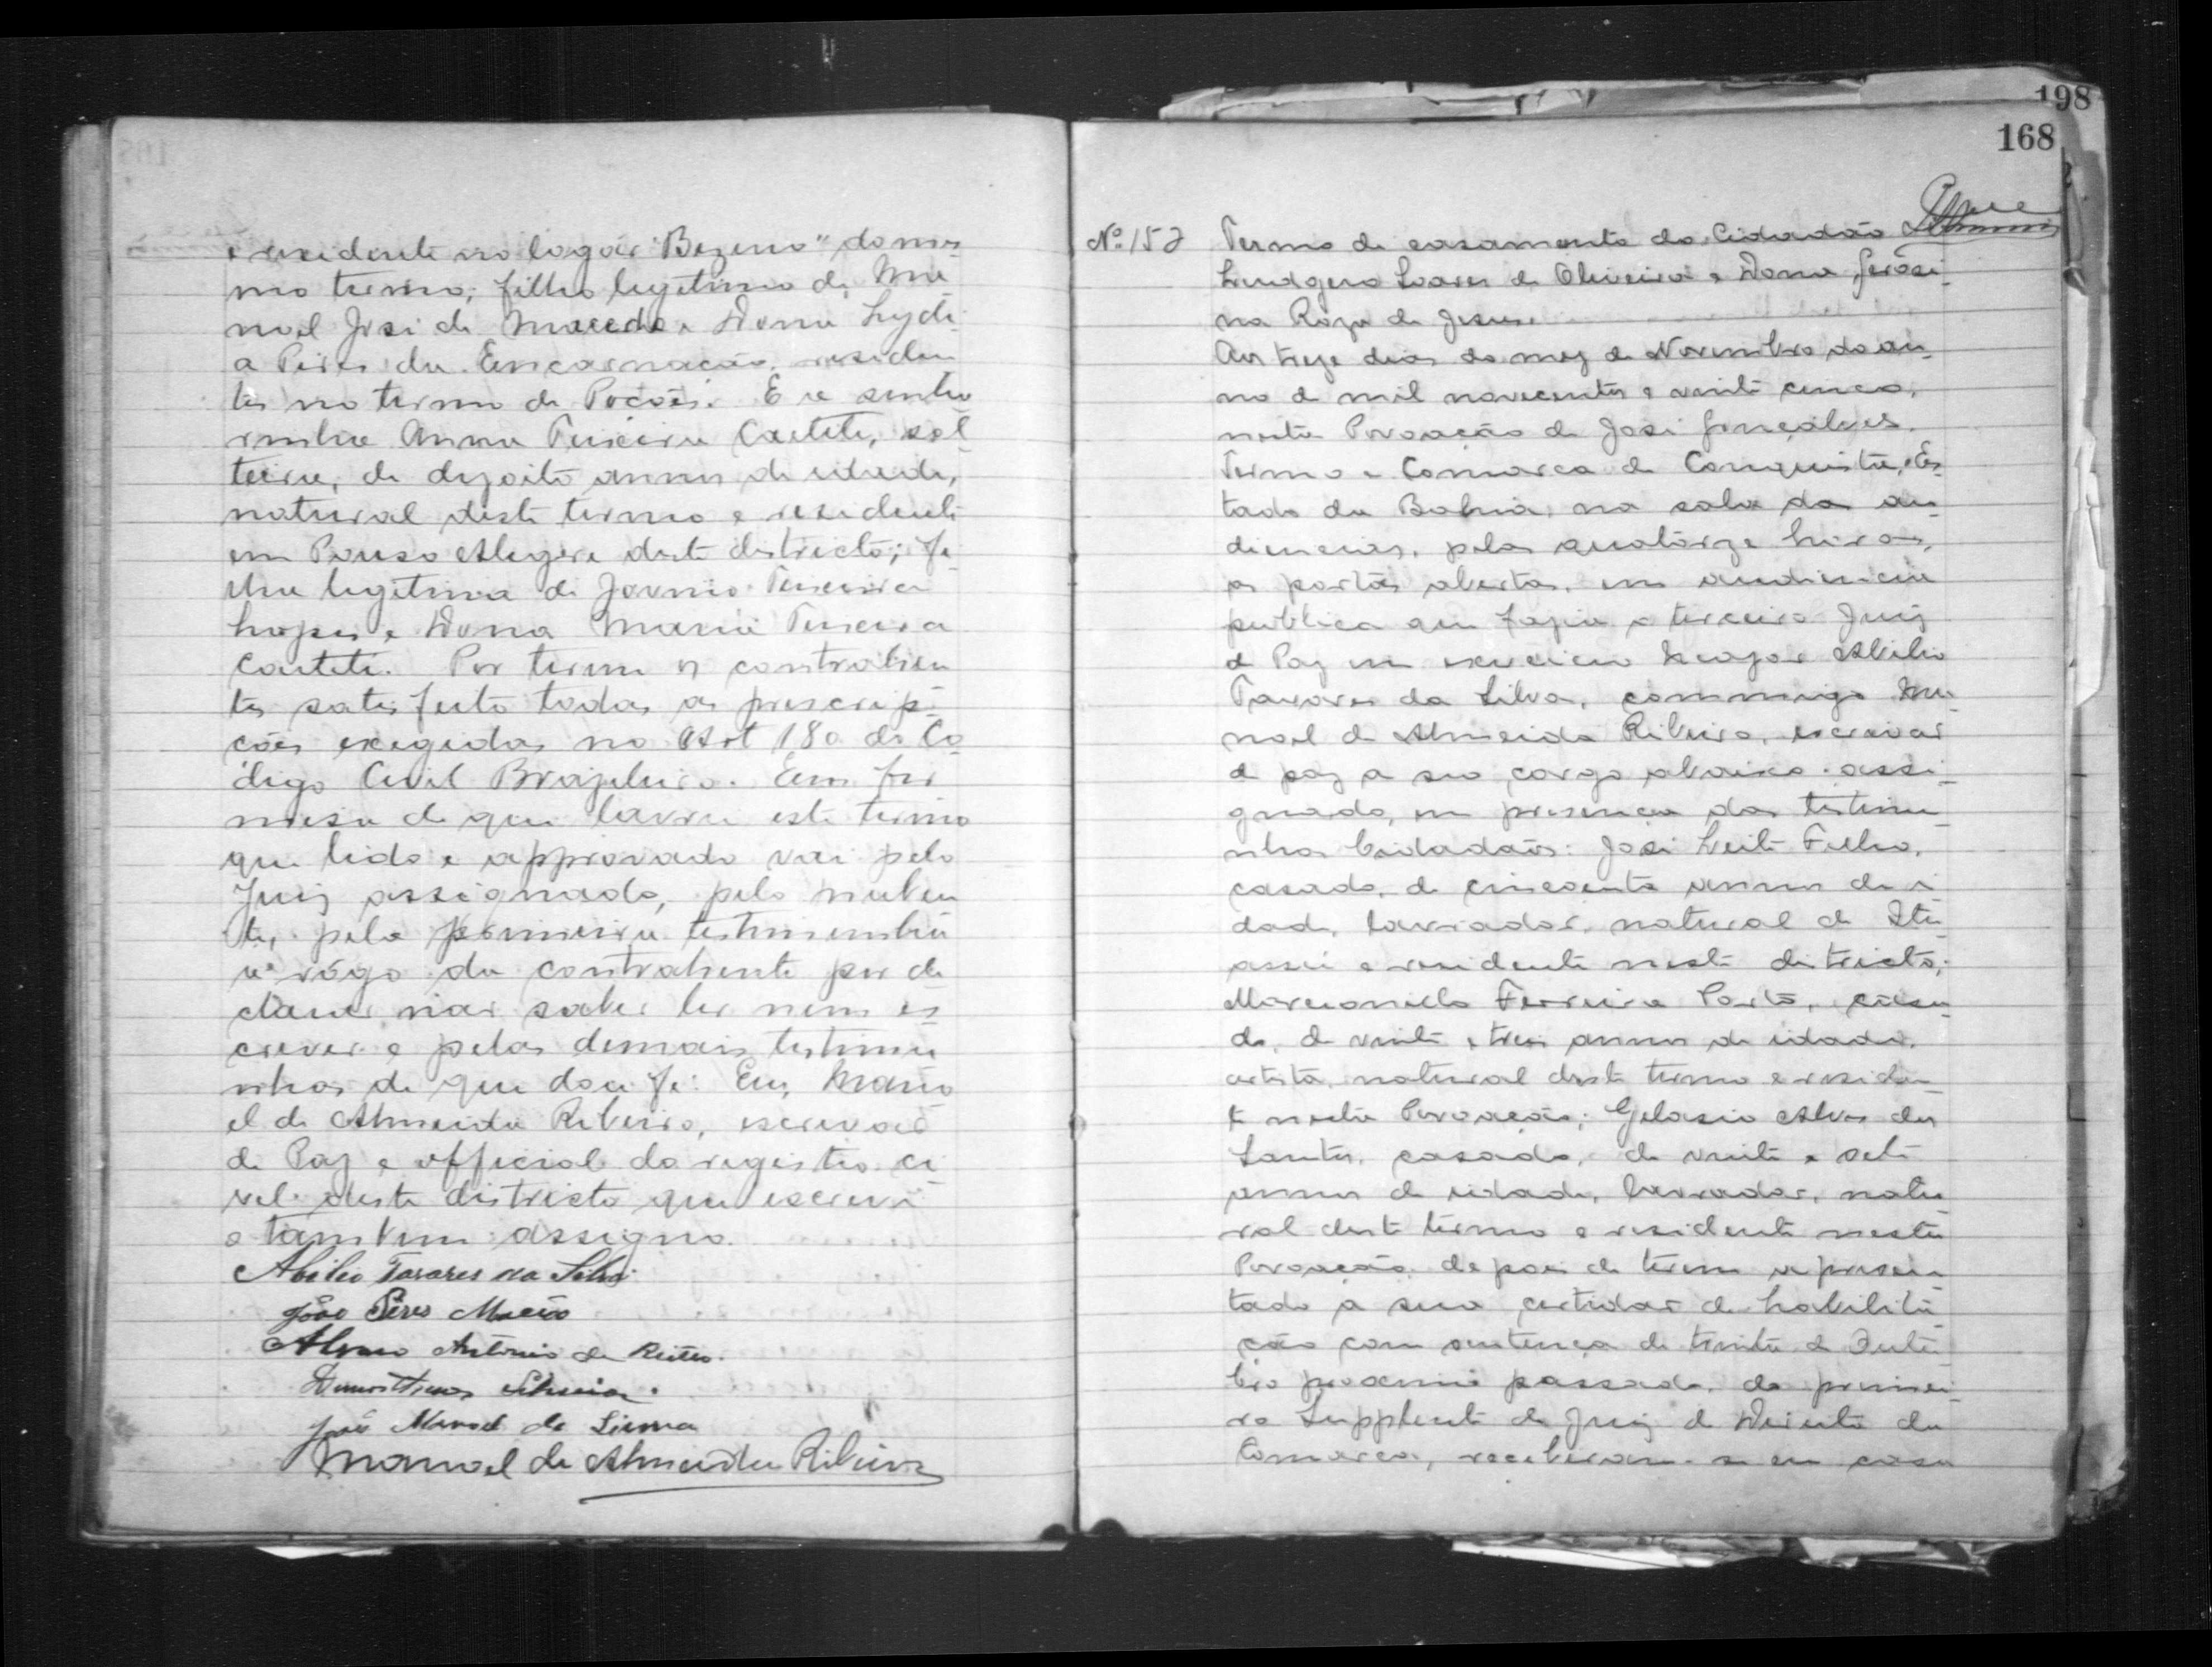 e residente no logar "Bezerro" do mes-
mo termo; filho legitimo de Ma-
noel José de Macedo e Dona Lydi-
a Pires da Encarnação, residen-
tes no termo de Poções. E a senho-
rinha Anna Teixeira Caetité, sol-
teira, de dezoito annos de idade,
natural deste termo e residente
em Pouso Alegre deste districto; fi-
lha legitima de Teixeira
Lopes e Dona Maria Teixeira
Caetité. Por terem os contrahen-
tes satisfeito todas as prescrip-
ções exegidas no Art 180 do Co-
digo Civil Brazileiro. Em fir-
mesa de que lavrei este termo
que lido e approvado vai pelo
Juiz assignado, pelo nuben-
te, pela primeira testimunha
a rógo da contrahente por de-
clarar não saber ler nem es-
crever e pelas demais testimu-
nhas de que dou fé. Eu, Mano-
el de Almeida Ribeiro, escrivão
de Paz e official do registro ci-
vel deste districto que escrevi
e tambem assigno.
Abilio Tavares da Silva
João Pires Macêdo
Antonio de
José Manoel de
Manoel de Almeida Ribeiro
198
168
Nº 157 Termo de casamento do Cidadão
Ludgero Soares de Oliveira e Dona Jerosi-
na Roza de Jesus.
Aos treze dias do mez de Novembro do an-
no de mil novecentos e vinte cinco,
nesta Povoação de José Gonçalves,
Termo e Comarca de Conquista, Es-
tado da Bahia, na sala das au-
diencias, pelas quatorze horas,
as portas abertas, em audiencia
publica que fazia o terceiro Juiz
de Paz em exercicio Major Abilio
Tavares da Silva, commigo Ma-
noel de Almeida Ribeiro, escrivão
de paz a seo cargo abaixo assi-
gnado, em presença das testimu-
nhas Cidadãos: José Leite Filho,
casado, de cincoenta annos de i-
dade, lavrador, natural de Itu-
assú e residente neste districto;
Marcionillo Ferreira Porto, casa-
do, de vinte e tres annos de idade,
artista, natural deste termo e residen-
te nesta Povoação; Gelasio Alves dos
Santos, casado, de vinte e sete
annos de idade, lavrador, natu-
ral deste termo e residente nesta
Povoação, depois de terem apresen-
tado a sua certidão de habilita-
ção com sentença de trinta de Outu-
bro proximo passado, do primei-
ro Supplente de Juiz de Direito da
Comarca, receberam-se em casa-